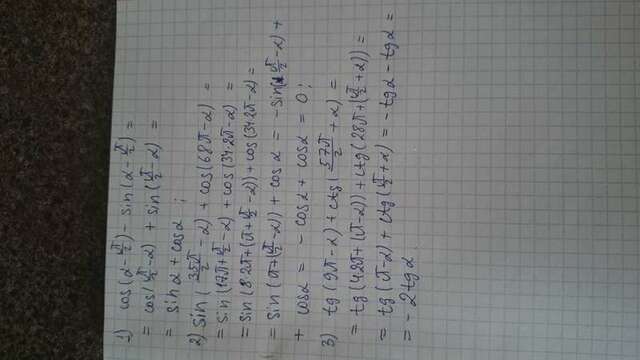 1) cos(α-π/2) - sin(α-π/2) =
= cos(π/2-α) + sin(π/2-α) =
= sinα + cosα ;
2) sin(35π/2 - α) + cos(68π-α) =
= sin(17π+π/2-α) + cos(34·2π-α) =
= sin(8·2π+(π+π/2-α)) + cos(34·2π-α) =
= sin(π+(π/2-α)) + cosα = -sin(π/2-α) +
+ cosα = - cosα + cosα = 0 ;
3) tg(9π-α) + ctg(57π/2 + α) =
= tg(4·2π+(π-α)) + ctg(28π+(π/2+α)) =
= tg(π-α) + ctg(π/2+α) = -tgα - tgα =
= -2tgα